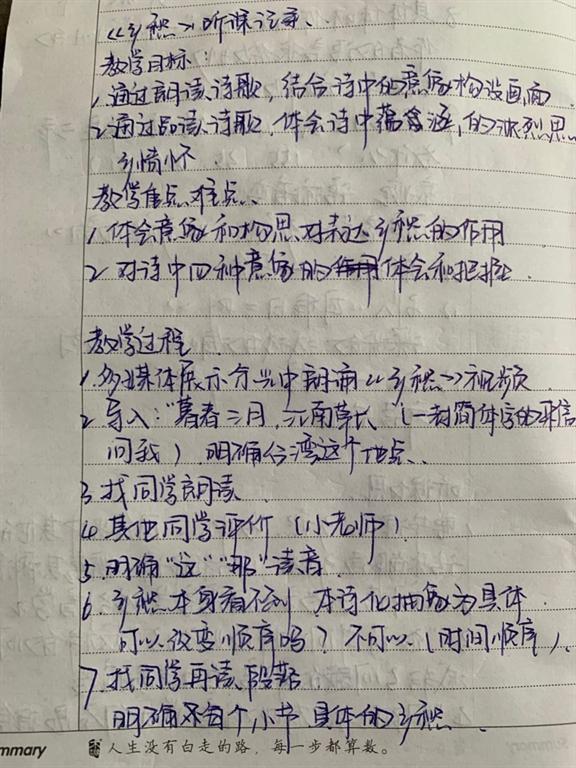 《乡愁》听课记录、
教学目标:
1.通过朗读诗歌,结合诗中的意象构设画面
2.通过品读诗歌,体会诗中蕴含的浓烈思
乡情怀.
教学重点、难点、
1.体会意象和构思对表达乡愁的作用
2.对诗中四种意象的体会和把握.
教学过程
1.多媒体展示余光中朗诵《乡愁》视频
2.导入:"暮春三月,江南草长"(一封简体字的来信
问我).明确台湾这个地点、
3.找同学朗读
4.其他同学评价(小老师)
5.明确"这""那"读音
6.乡愁本身看不到 本诗化抽象为具体.
可以改变顺序吗?不可以(时间顺序)、
7.找同学再读
明确每个小节具体的乡愁
mmary
人生没有白走的路,每一步都算数。